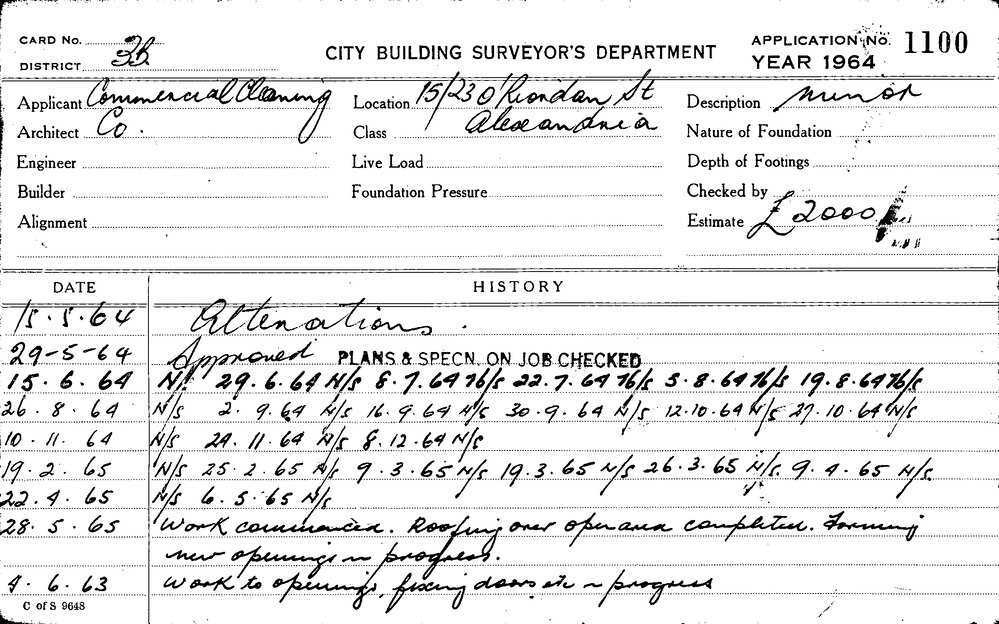 CARD No. 2B
DISTRICT
CITY BUILDING SURVEYOR'S DEPARTMENT
APPLICATION No. 1100
YEAR 1964
Applicant Commercial Cleaning
Location 15/23 O'Riordan St
Description minor
Architect Co.
Class Alexandria
Nature of Foundation
Engineer
Live Load
Depth of Footings
Builder
Foundation Pressure
Checked by
Alignment
Estimate £2000
DATE HISTORY
15.5.64 Alterations.
29-5-64 Approved PLANS & SPECN. ON JOB CHECKED
15.6.64 N/S 29.6.64 N/S 8.7.64 N/S 22.7.64 N/S 5.8.64 N/S 19.8.64 N/S
26.8.64 N/S 2.9.64 N/S 16.9.64 N/S 30.9.64 N/S 12.10.64 N/S 27.10.64 N/S
10.11.64 N/S 24.11.64 N/S 8.12.64 N/S
19.2.65 N/S 25.2.65 N/S 9.3.65 N/S 19.3.65 N/S 26.3.65 N/S. 9.4.65 N/S.
22.4.65 N/S 6.5.65 N/S
28.5.65 Work commenced. Roofing over open area completed. Forming
new openings in progress.
4.6.63 Work to openings, fixing doors etc in progress
C of S 9648